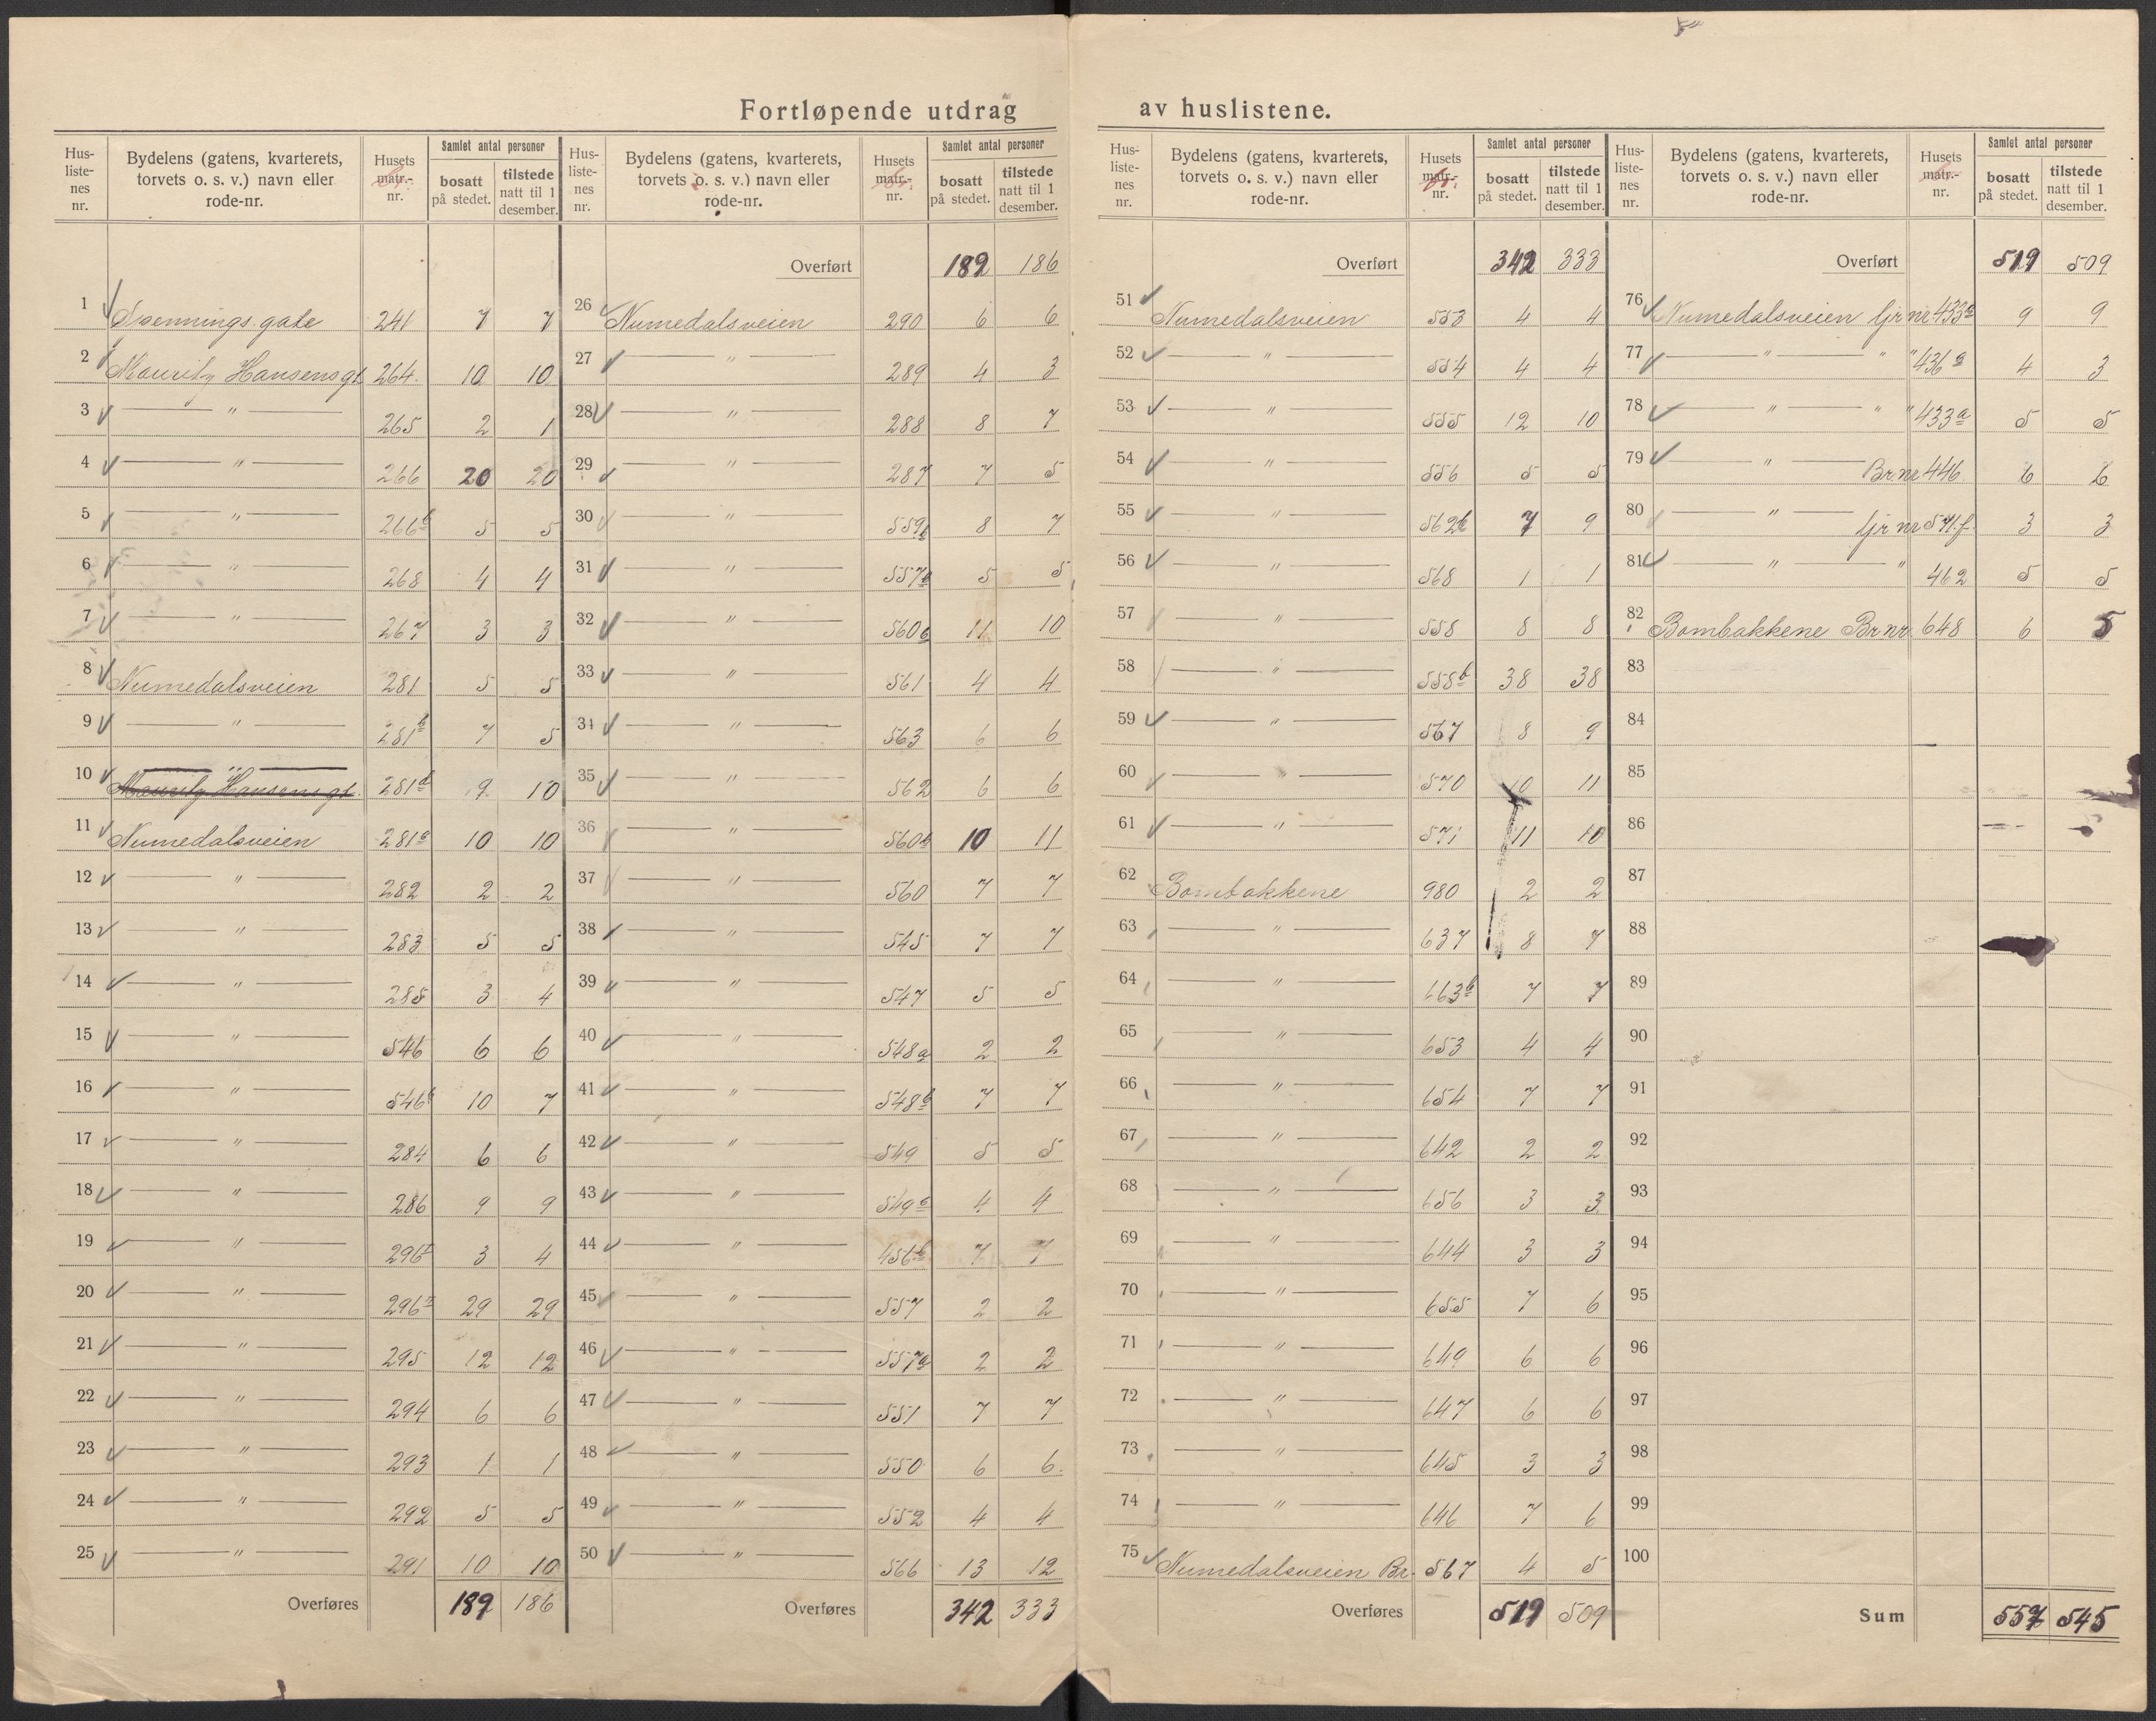 Fortløpende utdrag av huslistene.
Hus-liste-nes nr. | Bydelens (gatens, kvarterets, torvets o. s. v.) navn eller rode-nr. | Husets matr.- nr. | Samlet antal personer bosatt på stedet. | tilstede natt til 1 desember.
1 gate 241 7 7
2 Mauritz Hansens gt. 264 10 10
3 — " — 265 2 1
4 — " — 266 20 20
5 — " — 266b 5 5
6 — " — 268 4 4
7 — " — 267 3 3
8 Numedalsveien 281 5 5
9 — " — 281b 7 5
10 — " — Mauritz Hansens gt. 281d 9 10
11 Numedalsveien 281a 10 10
12 — " — 282 2 2
13 — " — 283 5 5
14 — " — 285 3 4
15 — " — 546 6 6
16 — " — 546b 10 7
17 — " — 284 6 6
18 — " — 286 9 9
19 — " — 296 3 4
20 — " — 296 29 29
21 — " — 295 12 12
22 — " — 294 6 6
23 — " — 293 1 1
24 — " — 292 5 5
25 — " — 291 10 10
Overføres 189 186
Hus-liste-nes nr. | Bydelens (gatens, kvarterets, torvets o. s. v.) navn eller rode-nr. | Husets matr.- nr. | Samlet antal personer bosatt på stedet. | tilstede natt til 1 desember.
Overført 189 186
26 Numedalsveien 290 6 6
27 — " — 289 4 3
28 — " — 288 8 7
29 — " — 287 7 5
30 — " — 559b 8 7
31 — " — 557b 5 5
32 — " — 560 11 10
33 — " — 561 4 4
34 — " — 563 6 6
35 — " — 562 6 6
36 — " — 560b 10 11
37 — " — 560 7 7
38 — " — 545 7 7
39 — " — 547 5 5
40 — " — 548a 2 2
41 — " — 548b 7 7
42 — " — 549 5 5
43 — " — 549a 4 4
44 — " — 456b 7 7
45 — " — 557 2 2
46 — " — 557a 2 2
47 — " — 551 7 7
48 — " — 550 6 6
49 — " — 552 4 4
50 — " — 566 13 12
Overføres 342 333
Hus-liste-nes nr. | Bydelens (gatens, kvarterets, torvets o. s. v.) navn eller rode-nr. | Husets matr.- br. nr. | Samlet antal personer bosatt på stedet. | tilstede natt til 1 desember.
Overført 342 333
51 Numedalsveien 553 4 4
52 — " — 554 4 4
53 — " — 555 12 10
54 — " — 556 5 5
55 — " — 562b 7 9
56 — " — 568 1 1
57 — " — 558 8 8
58 — " — 558b 38 38
59 — " — 567 8 9
60 — " — 570 10 11
61 — " — 571 11 10
62 Bombakkene 980 2 2
63 — " — 637 8 7
64 — " — 663b 7 7
65 — " — 653 4 4
66 — " — 654 7 7
67 — " — 642 2 2
68 — " — 656 3 3
69 — " — 644 3 3
70 — " — 655 7 6
71 — " — 649 6 6
72 — " — 647 6 6
73 — " — 645 3 3
74 — " — 646 7 6
75 Numedalsveien Br. 567 4 5
Overføres 519 509
Hus-liste-nes nr. | Bydelens (gatens, kvarterets, torvets o. s. v.) navn eller rode-nr. | Husets matr.- nr. | Samlet antal personer bosatt på stedet. | tilstede natt til 1 desember.
Overført 519 509
76 Numedalsveien Gr nr 433b 9 9
77 — " — " " 436a 4 3
78 — " — " " 433a 5 5
79 — " — Br. nr 446 6 6
80 — " — Gr nr 571.f. 3 3
81 — " — " 462 5 5
82 Bombakkene Br nr. 648 6 5
83
84
85
86
87
88
89
90
91
92
93
94
95
96
97
98
99
100
Sum 557 545